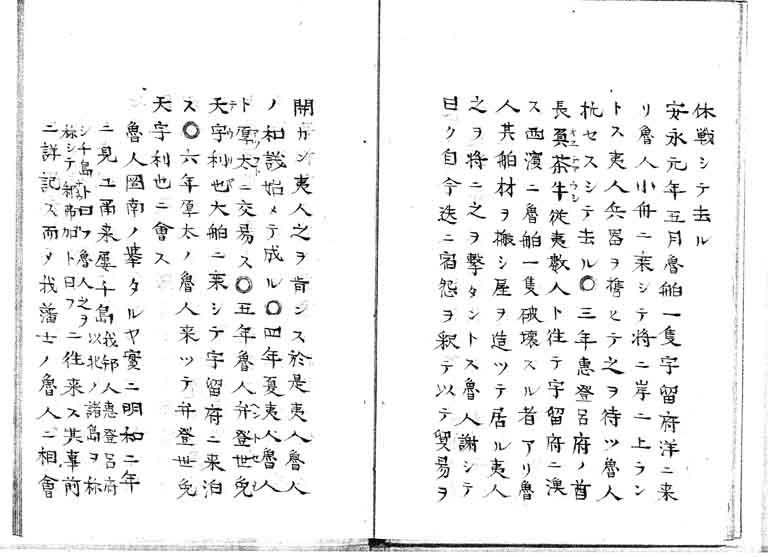 休戦シテ去ル
安永元年五月魯舶一隻宇留府洋ニ来
リ魯人小舟ニ乗シテ将ニ岸ニ上ラン
トス夷人兵器ヲ携ヒテ之ヲ待ツ魯人
抗セスシテ去ル○三年恵登呂府ノ酋
長奠茶牛従夷数人ト往テ宇留府ニ漁
ス西濱ニ魯舶一隻破壊スル者アリ魯
人其舶材ヲ搬シ屋ヲ造ツテ居ル夷人
之ヲ将ニ之ヲ撃タントス魯人謝シテ
曰ク自今迭ニ宿怨ヲ釈テ以テ貿易ヲ
開カン夷人之ヲ肯ンス於是夷人魯人
ノ和談始メテ成ル○四年夏夷人魯人
ト厚太ニ交易ス○五年魯人弁登世免
天宇利也大舶ニ乗シテ宇留府ニ来泊
ス○六年厚太ノ魯人来ツテ弁登世免
天宇利也ニ會ス
魯人圖南ノ挙タルヤ實ニ明和二年
ニ見エ甬来屢千島我邦人恵登呂府
以北ノ諸島ヲ称
シ千島ト曰フ魯人之ヲ
ニ往来ス其事前
ニ詳記ス而メ我藩士ノ魯人ニ相會